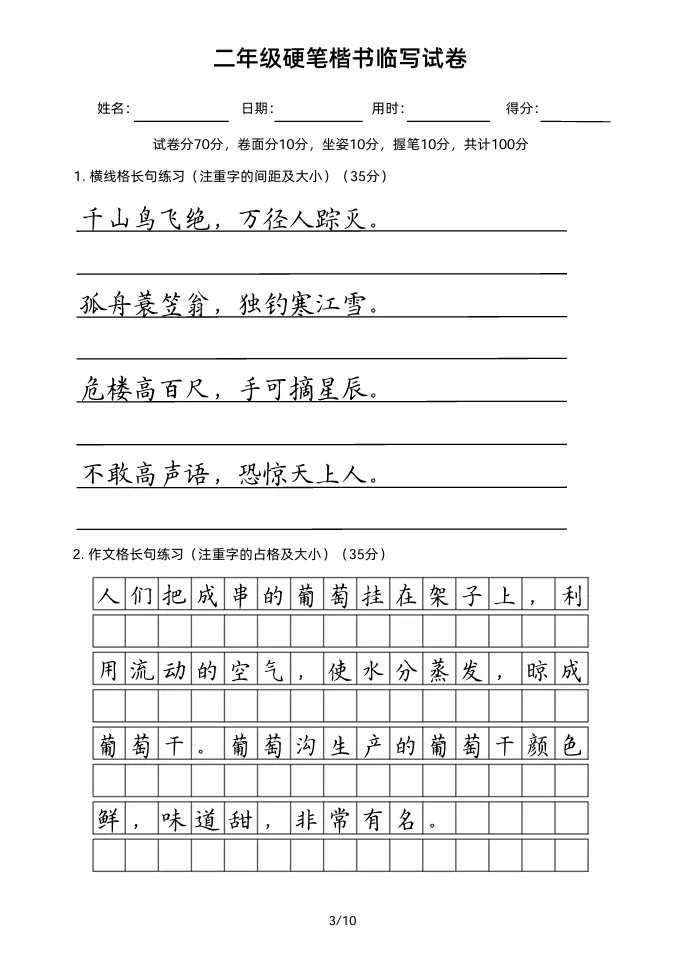 二年级硬笔楷书临写试卷
姓名： 日期： 用时： 得分：
试卷分70分，卷面分10分，坐姿10分，握笔10分，共计100分
1. 横线格长句练习（注重字的间距及大小）（35分）
千山鸟飞绝，万径人踪灭。
孤舟蓑笠翁，独钓寒江雪。
危楼高百尺，手可摘星辰。
不敢高声语，恐惊天上人。
2. 作文格长句练习（注重字的占格及大小）（35分）
人们把成串的葡萄挂在架子上，利
用流动的空气，使水分蒸发，晾成
葡萄干。葡萄沟生产的葡萄干颜色
鲜，味道甜，非常有名。
3/10